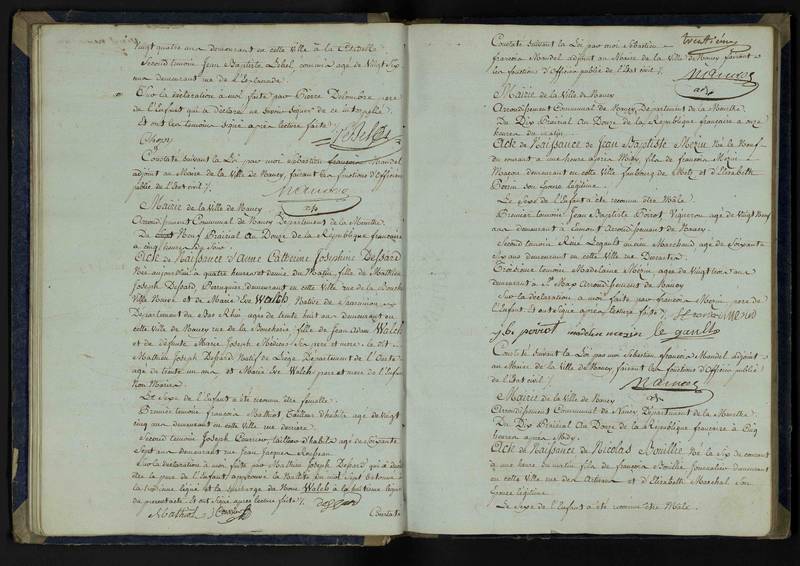 vingt quatre ans demeurant en cette Ville à la Citadelle
Second temoin Jean Baptiste Lebel, commis agé de Vingt Six
ans demeurant rue de l'Esplanade
Sur la declaration à moi faite par Pierre Delombre pere
de l'Enfant qui a déclaré ne savoir signer de ce interpellé
Et ont les temoins signé après lecture faite
Lebel
Constaté Suivant la Loi par moi Sebastien françois Mandel
adjoint au Maire de la Ville de Nancy, faisant les fonctions d'Officier
public de l'Etat civil
Mandel
Mairie de la Ville de Nancy
Arrondissement Communal de Nancy Departement de la Meurthe.
Du Neuf Prairial an Douze de la République française
à cinq heures du Soir
Acte de Naissance d'Anne Catherine Josephine Dessard
Née aujourd'hui à quatre heures et demie du Matin, fille de Mathieu
Joseph Dessard, Perruquier, demeurant en cette Ville rue de la Boucherie
Ville Neuve et de Marie Eve Walch Native de
Departement du Bas Rhin agée de trente huit ans demeurant en
cette Ville de Nancy rue de la Boucherie, fille de Jean Adam Walch
et de défunte Marie Joseph Ses pere et mere. Le dit
Mathieu Joseph Dessard Natif de Liège Département de l'Ourte
agé de trente un ans et Marie Eve Walch pere et mere de l'Enfant
Non Mariés
Le Sexe de l'Enfant a été reconnu être femelle.
Premier temoin françois Mathiot Tailleur d'habits agé de Vingt
cinq ans demeurant en cette Ville rue derriere
Second temoin Joseph tailleur d'habits agé de soixante
Sept ans demeurant rue Jean Jacques Rousseau
Sur la déclaration à moi faite par Mathieu Joseph Dessard qui a dit
être le pere de l'Enfant, approuvé la Nullité du mot Sept batonné à
la troisieme ligne et la Surcharge du Nom Walch à la huitieme ligne
du present acte. Et ont signé après lecture faite
Mathiot
Constaté
trentième
Constaté suivant la Loi par moi Sebastien
françois Mandel adjoint au Maire de la Ville de Nancy faisant
les fonctions d'Officier public de l'Etat civil
Mandel
Mairie de la Ville de Nancy
Arrondissement Communal de Nancy Departement de la Meurthe.
Du Dix Prairial an Douze de la Republique française à onze
heures du matin
Acte de Naissance de Jean Baptiste Né le Neuf
du courant à une heure après Midy, fils de françois
Maçon demeurant en cette Ville faubourg de Metz et d'Elisabeth
son Epouse légitime.
Le Sexe de l'Enfant a été reconnu être Mâle.
Premier temoin Jean Baptiste Poirot Vigneron agé de Vingt Neuf
ans demeurant à Arrondissement de Nancy.
Second temoin René Legault ancien Marchand agé de Soixante
six ans demeurant en cette Ville rue
Troisieme temoin Madelaine agée de Vingt ans
demeurant à St Max Arrondissement de Nancy
Sur la déclaration à moi faite par françois pere de
l'Enfant. Et ont signé après lecture faite
j.b. poirot madelein le gault
Constaté Suivant la Loi par moi Sebastien françois Mandel adjoint
au Maire de la Ville de Nancy faisant les fonctions d'Officier public
de l'Etat civil
Mandel
Mairie de la Ville de Nancy
Arrondissement Communal de Nancy Departement de la Meurthe
Du Dix Prairial an Douze de la République française à Cinq
heures après Midy
Acte de Naissance de Nicolas Bouillie Né le Dix du courant
à une heure du matin fils de françois Bouillie Journalier demeurant
en cette Ville rue des Artisans et d'Elizabeth Marchal Son
Epouse légitime
Le Sexe de l'Enfant a été reconnu être Mâle.